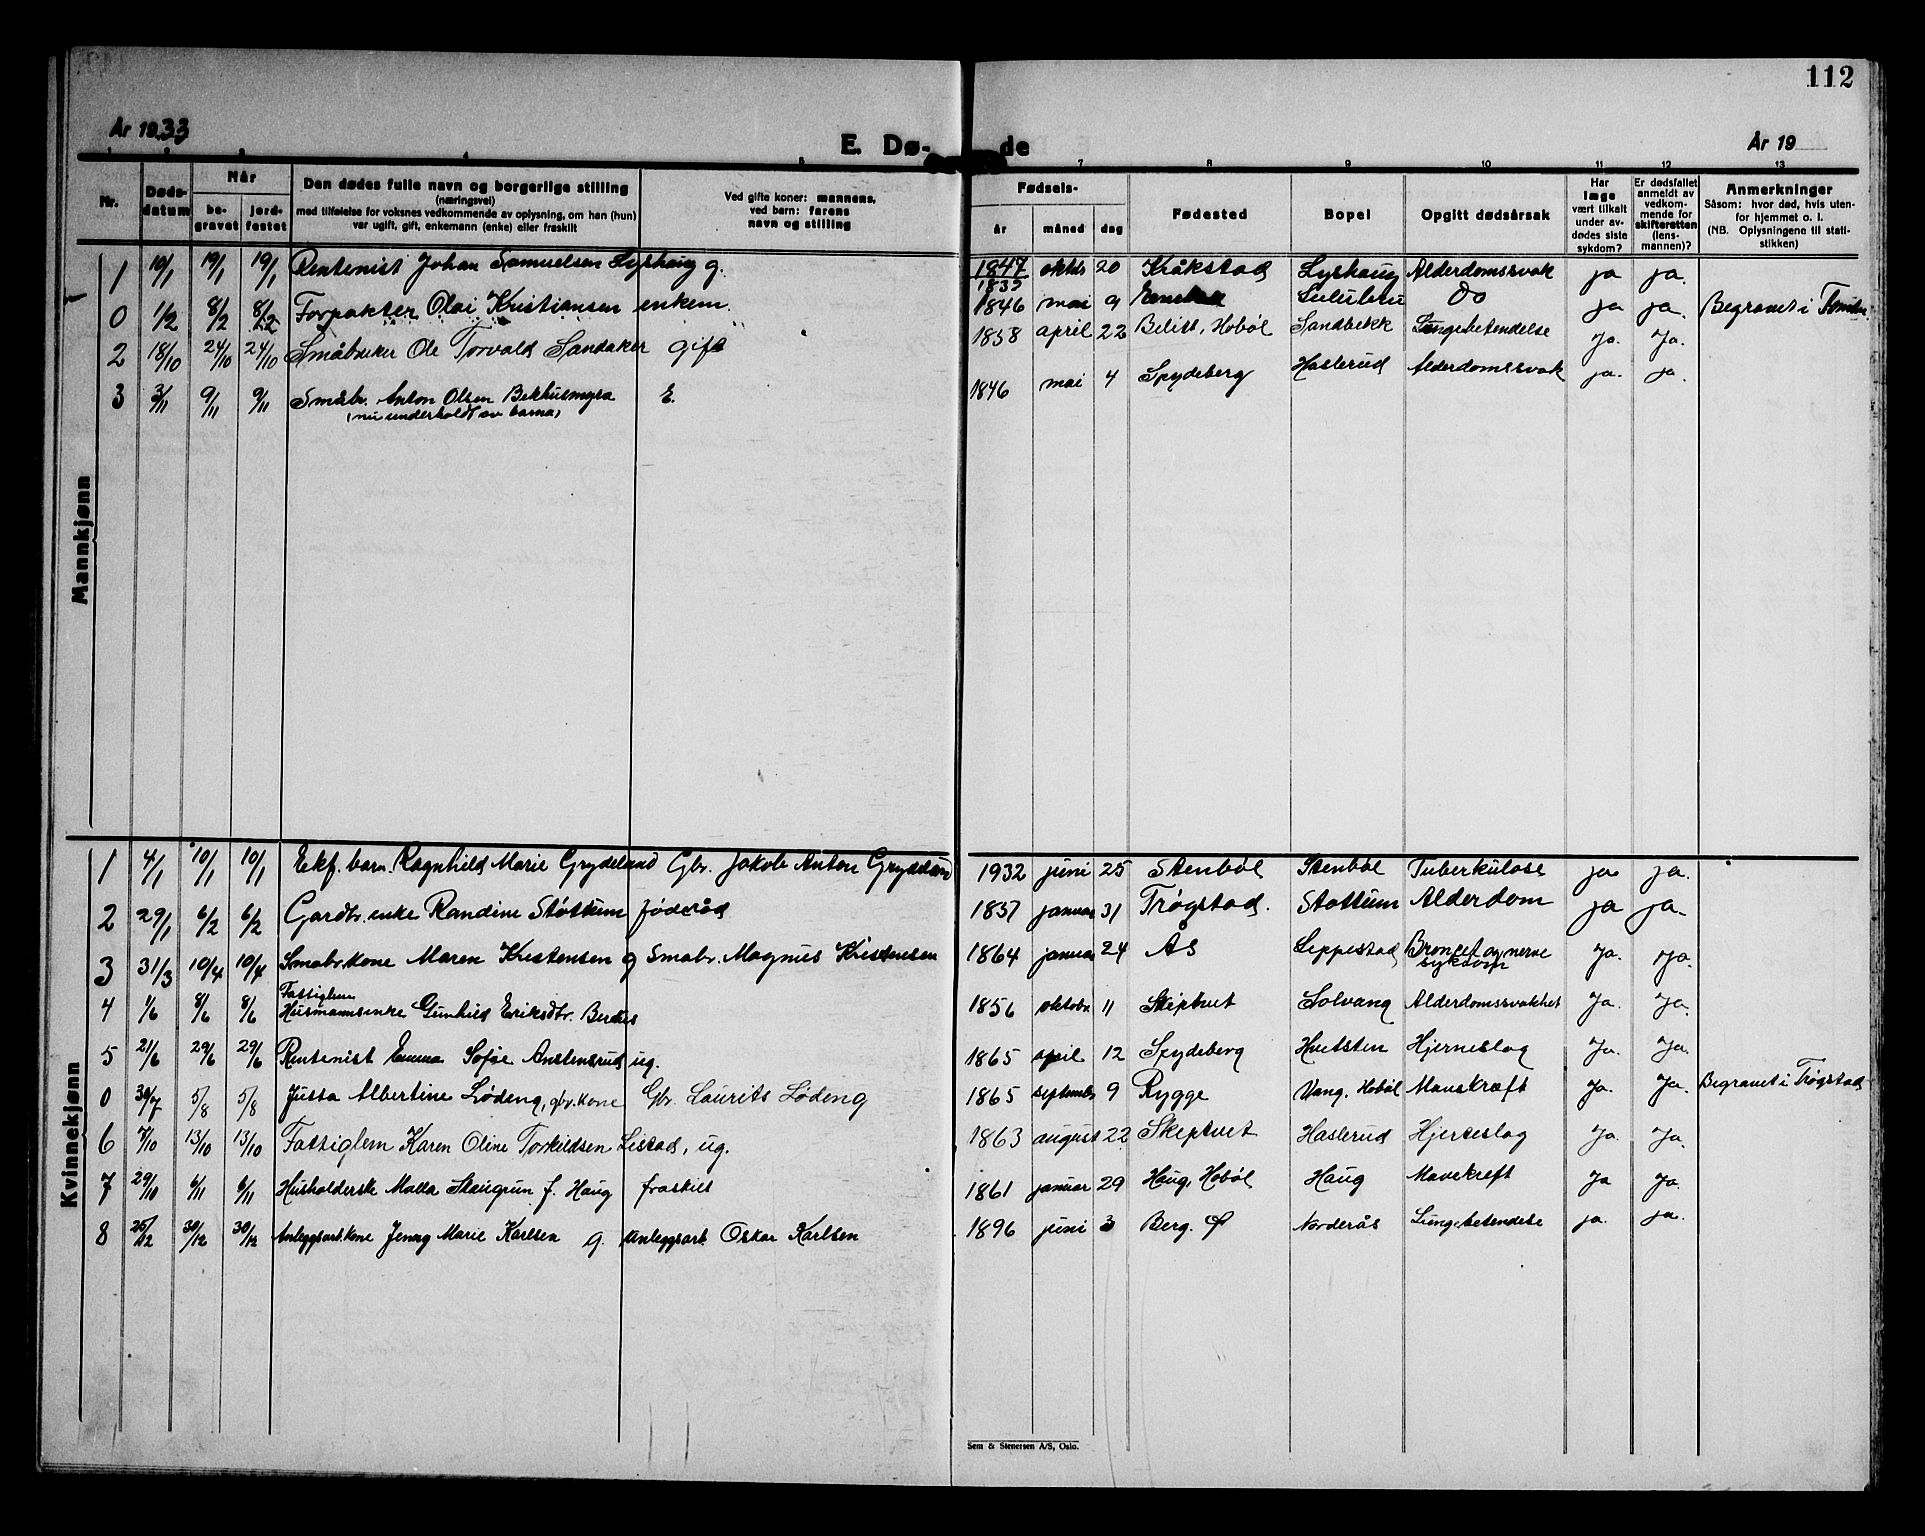 112
År 1933
E. Dø-
de
År 19
1 2 3 4 5 7 8 9 10 11 12 13
Nr. Døds-datum Når be-gravet jord-festet Den dødes fulle navn og borgerlige stilling (næringsvei) med tilføielse for voksnes vedkommende av oplysning, om han (hun) var ugift, gift, enkemann (enke) eller fraskilt Ved gifte koner: mannens, ved barn: farens navn og stilling Fødsels- år måned dag Fødested Bopel Opgitt dødsårsak Har læge vært tilkalt under av-dødes siste sykdom? Er dødsfallet anmeldt av vedkom-mende for skifteretten (lens-mannen)? Anmerkninger Såsom: hvor død, hvis uten-for hjemmet o. l. (NB. Oplysningene til stati-stikken)
Mannkjønn
1 10/1 19/1 19/1 Rentenist Johan Samuelsen Lyshaug g. 1847 oktbr 20 Kråkstad Lyshaug Alderdomssvak ja ja.
0 1/2 8/2 8/2 Forpakter Olai Kristiansen enkem. 1846 mai 9 Do ja ja. Begravet i
2 18/10 24/10 24/10 Småbruker Ole Torvald Sandaker gift 1858 april 22 Hobøl Sandbekk Lungebetendelse Ja. Ja.
3 3/11 9/11 9/11 Småbr. Anton Olsen Bekhusmyra E. 1846 mai 4 Spydeberg Haslerud Alderdomssvak ja. ja.
(nu underholdt av barna)
Kvinnekjønn
1 4/1 10/1 10/1 Ekf. barn. Ragnhild Marie Grydeland Gbr. Jakob Anton Grydeland 1932 juni 25 Stenbøl Stenbøl Tuberkulose ja ja.
2 29/1 6/2 6/2 Gardbr. enke Randine Støttum føderåd 1857 januar 31 Trøgstad. Støttum Alderdom ja ja.
3 31/3 10/4 10/4 Småbr.kone Maren Kristensen g Småbr. Magnus Kristensen 1864 januar 24 Ås Leppestad og nerve Ja. Ja.
sykdom
Fattiglem
4 1/6 8/6 8/6 Husmannsenke Gunhild Eriksdtr. 1856 oktobr. 11 Skiptvet Solvang Alderdomssvakhet Ja. Ja.
5 21/6 29/6 29/6 Rentenist Emma Sofie Anstensrud ug. 1865 april 12 Spydeberg Hvitsten Hjerneslag Ja. Ja.
0 30/7 5/8 5/8 Jussa Albertine Løding, gbr.kone Gbr. Laurits Løding 1865 september 9 Rygge Vang. Hobøl Mavekræft Ja. Ja. Begravet i Trøgstad
6 7/10 13/10 13/10 Fattiglem Karen Oline Torkildsen Listad, ug. 1863 august 22 Skeptvet Haslerud Hjerteslag Ja. Ja.
7 29/10 6/11 6/11 Husholderske Malla Skaugrun f. Haug fraskilt 1861 januar 29 Haug, Hobøl Haug Mavekreft Ja Ja.
8 25/12 30/12 30/12 Anleggsarb.kone Jenny Marie Karlsen g. anleggsarb. Oskar Karlsen 1896 juni 3 Berg. Ø Norderås Lungebetendelse ja. ja.
Sem & Stenersen A/S, Oslo.